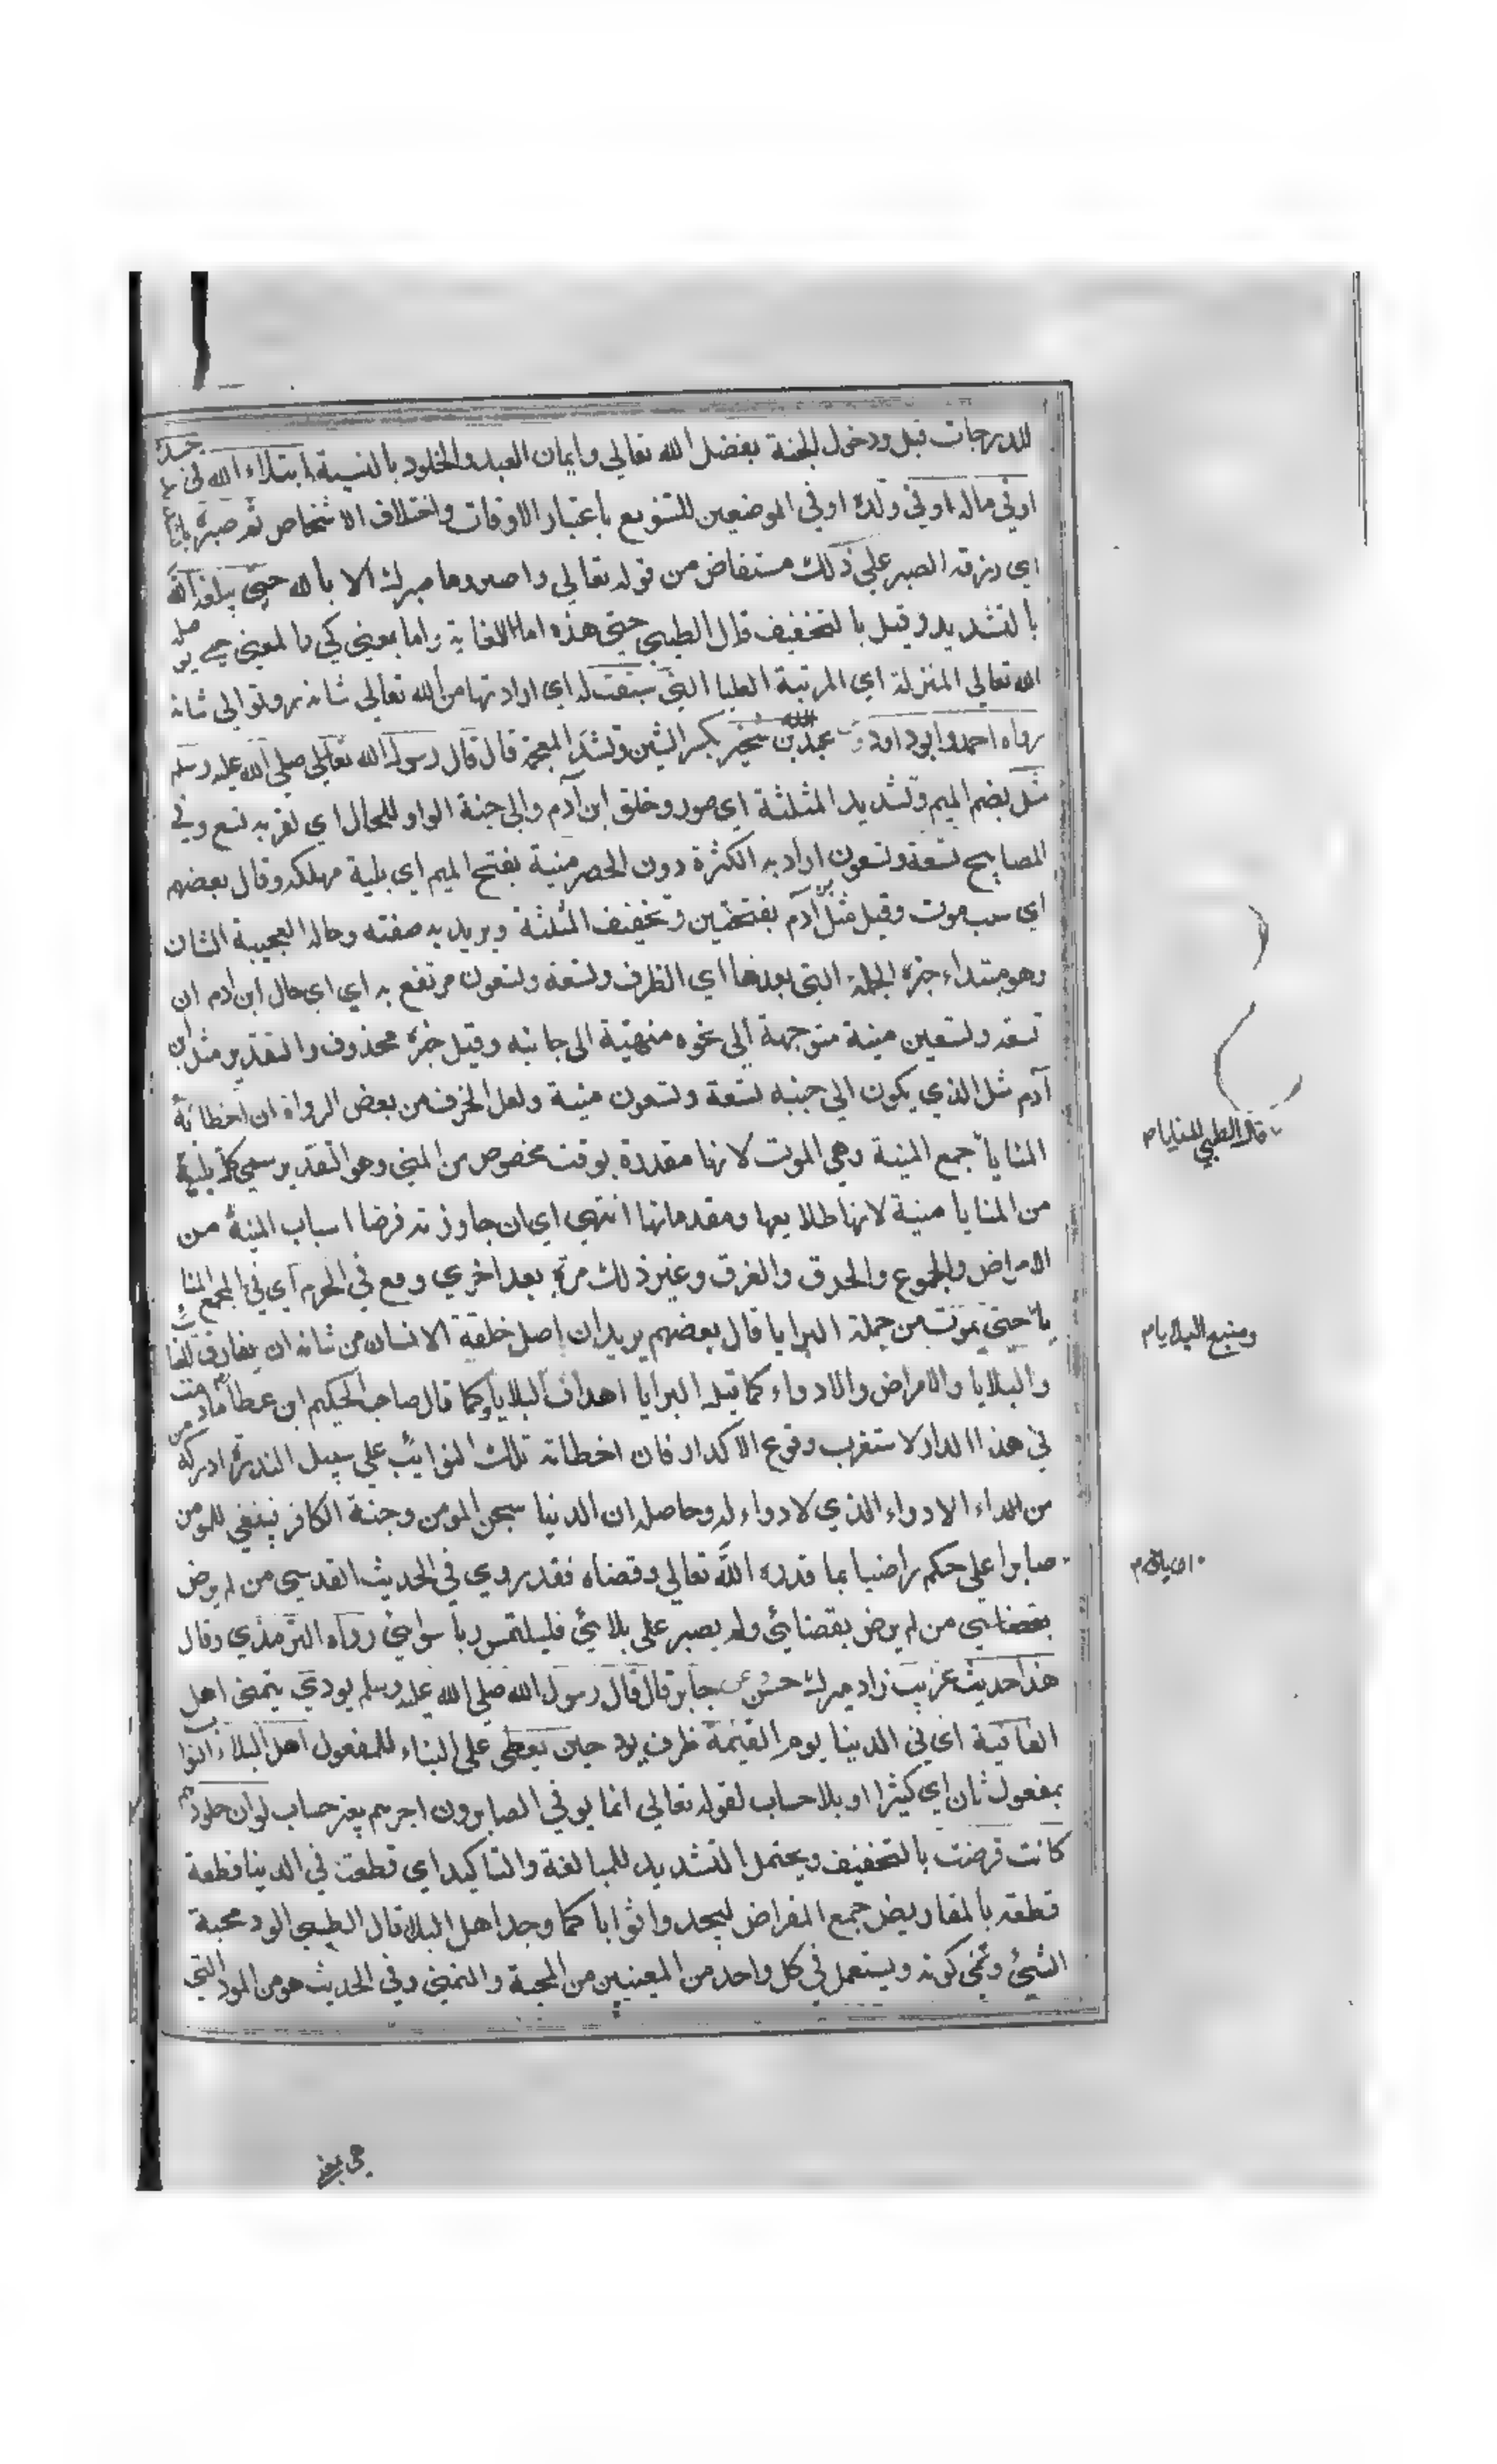 للدرجات قيل ودخول الجنة بفضل الله تعالي وايمان العبد والخلود بالنسبة ابتلاءه الله في جسده
اوفي ماله اوفي ولده اوفي الموضعين للتنويع باعتبار الاوقات واختلاف الاشخاص ثم صبره
اي رزقه الصبر علي ذلك مستفاض من قوله تعالي واصبر وما صبرك الا بالله حتي يبلغه الله
بالتشديد وقيل بالتخفيف قال الطيبي حتي هذه اما للغاية واما بمعني كي والمعني حتي يوصله
الله تعالي المنزلة اي المرتبة العليا التي سبقت له اي ارادتها من الله تعالي شانه
رواه احمد وابو داود وعن عبد الله بن شخير بكسر الشين وتشد المعجمة قال قال رسول الله تعالي صلي الله عليه وسلم
مثل بضم الميم وتشديد المثلثة اي صور وخلق ابن آدم والي جنبه الواو للحال اي تقربه تسع وفي
المصابيح تسعة وتسعون اراد به الكثرة دون الحصر منية بفتح الميم اي بلية مهلكه وقال بعضهم
اي سبب موت وقيل مثل ابن آدم بفتحتين وتخفيف المثلثة ويريد به صفته وحاله العجيبة الشان
وهو مبتداء خبره الجملة التي بعدها اي الظرف وتسعة وتسعون مرتفع به اي اي حال ابن ادم ان
تسعه وتسعين منية متوجهة الي نحوه منتهية الي جانبه وقيل خبره محذوف والتقدير مثل ابن
آدم مثل الذي يكون الي جنبه تسعة وتسعون منية ولعل الحذف من بعض الرواة ان اخطاته
المنايا جمع المنية وهي الموت لانها مقدرة بوقت مخصوص من المني وهو التقدير سمي كل بلية
من المنايا منية لانها طلايعها ومقدماتها انتهي اي ان جاوزته فرضا اسباب المنية من
الامراض والجوع والحرق والغرق وغير ذلك مرة بعد اخري وقع في الهرم اي في المجمع المنا
يا حتي يموت من جملة البرايا قال بعضهم يريد ان اصل خلقة الانسان من شانه ان يفارقه
والبلايا والامراض والادواء كما قيل البرايا اهداف البلايا وكما قال صاحب الحكيم ابن عطا مادمت
في هذا الدار لا ستغرب وقوع الاكدار فان اخطاته تلك النوايب علي سبيل الندرة ادركه
من الداء الادواء الذي لا دواء له وحاصله ان الدنيا سجن المومن وجنة الكافر فينبغي للمومن
صابرا علي حكم راضيا بما قدره الله تعالي وقضاه فقد روي في الحديث القدسي من لم يرض
بقضايي من لم يرض بقضائي ولم يصبر علي بلائي فليلتمس ربا سوائي رواه الترمذي وقال
هذا حديث غريب زاد ميرك حسن وعن جابر قال قال رسول الله صلي الله عليه وسلم يود اي يتمني اهل
العافية اي في الدنيا يوم القيمة ظرف يود حين يعطي علي البناء للمفعول اهل البلاء الثواب
بمفعول ثان اي كثيرا او بلا حساب لقوله تعالي انما يوفي الصابرون اجرهم بغير حساب لو ان جلودهم
كانت قرضت بالتخفيف ويحتمل التشديد للمبالغة والتاكيد اي قطعت في الدنيا قطعة
قطعة بالمقاريض جمع المقراض ليجدوا ثوابا كما وجد اهل البلا قال الطيبي الود محبة
الشيئ وتمني كونه ويستعمل في كل واحد من المعنيين من المحبة والتمني وفي الحديث هو من المود التي
قال الطيبي المنايا م
ومنبع البلايا م